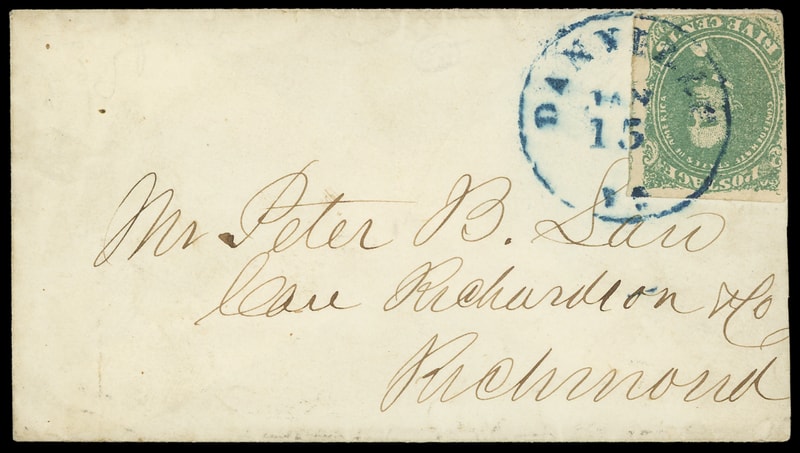 DANVILLE
JAN
15
Va
FIVE CENTS
CONFEDERATE STATES OF AMERICA
POSTAGE
Mr Peter B. Law
Care Richardson & Co
Richmond